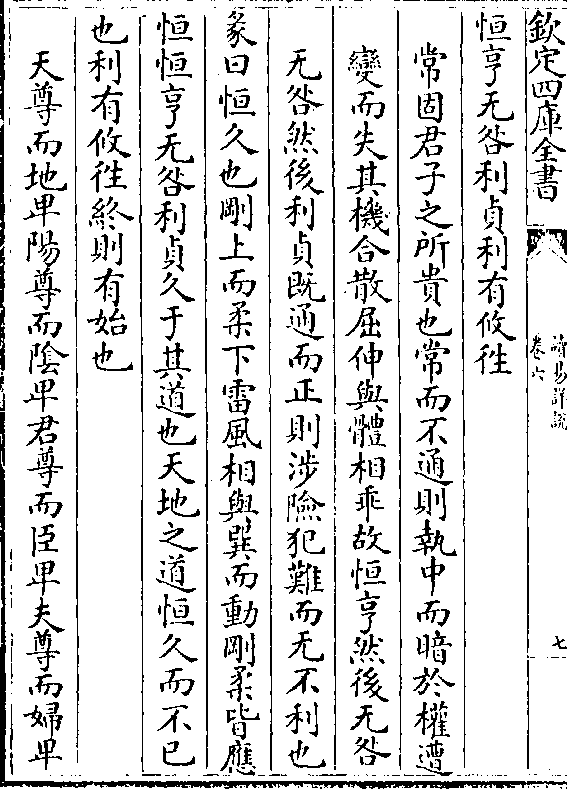 欽定四庫全書
讀易詳說
卷六
七
恒亨无咎利貞利有攸往
常固君子之所貴也常而不通則執中而暗於權遭
變而失其機合散屈伸與體相乖故恒亨然後无咎
无咎然後利貞既通而正則涉險犯難而无不利也
彖曰恒久也剛上而柔下雷風相與巽而動剛柔皆應
恒恒亨无咎利貞久于其道也天地之道恒久而不已
也利有攸往終則有始也
天尊而地卑陽尊而陰卑君尊而臣卑夫尊而婦卑